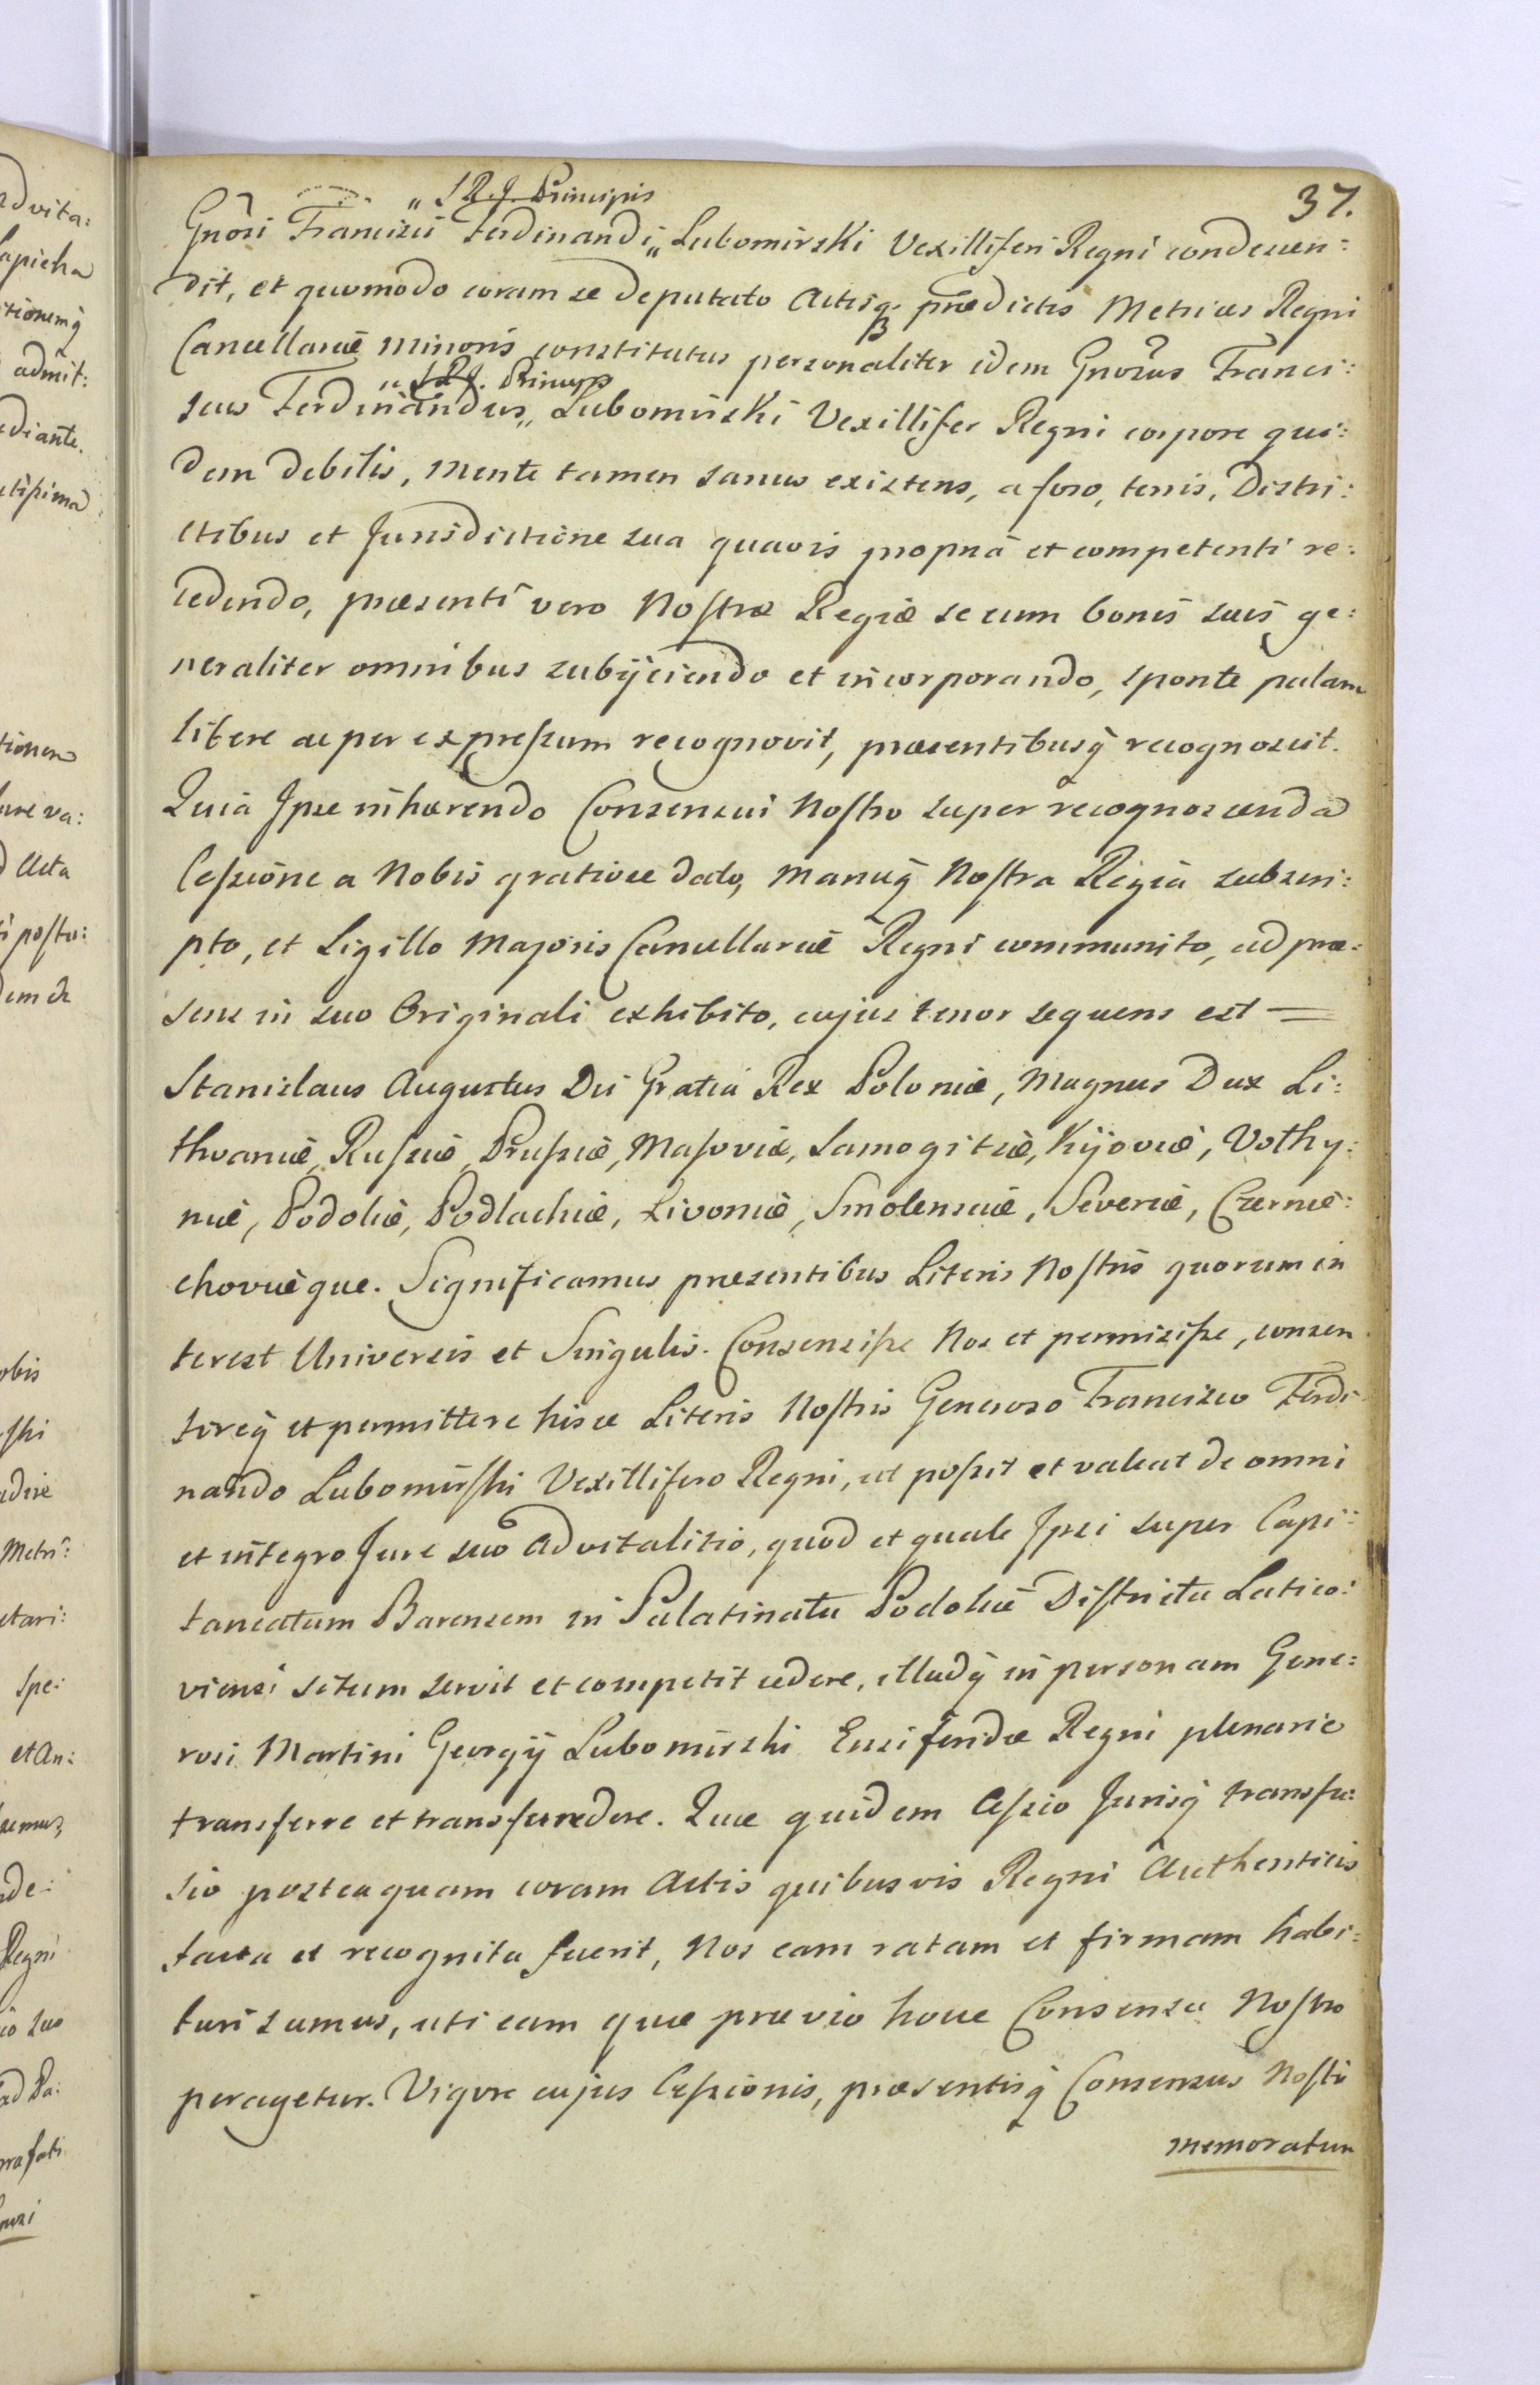 37.
„ S. R. I. Principis
Gnôsi Francisci Ferdinandi „ Lubomirski Vexilliferi Regni condescen:
dit, et quomodo coram se deputato Actisq̃ prædictis Metrices Regni
Cancellariæ Minoris constitutus personaliter idem Gnosus Franci:
„ S. R. I. Princeps
scus Ferdinandus „ Lubomirski Vexillifer Regni corpore qui:
dem debilis, mente tamen sanus existens, a foro, terris, Distri:
ctibus et Jurisdictione sua quavis propria et competenti re:
cedendo, præsenti vero Nostræ Regiæ se cum bonis suis ge:
neraliter omnibus subijciendo et incorporando, sponte palam
libere ac per expressum recognovit, præsentibusq̃ recognoscit.
Quia Ipse inhærendo Consensui Nostro super recognoscenda
Cessione a Nobis gratiose dato, manuq̃ Nostra Regia subscri:
pto, et Sigillo Majoris Cancellariæ Regni communito, ad præ:
sens in suo Originali exhibito, cujus tenor sequens est =
Stanislaus Augustus Dei Gratia Rex Poloniæ, Magnus Dux Li:
thvaniæ, Russiæ, Prussiæ, Masoviæ, Samogitiæ, Kijoviæ, Volhy:
niæ, Podoliæ, Podlachiæ, Livoniæ, Smolensciæ, Severiæ, Czernie:
choviæque. Significamus præsentibus Literis Nostris quorum in
terest Universis et Singulis. Consensisse Nos et permisisse, consen
tireq̃ et permittere hisce Literis Nostris Generoso Francisco Ferdi
nando Lubomirski Vexillifero Regni, ut possit et valeat de omni
et integro Jure suo advitalitio, quod et quale Ipsi super Capi:
taneatum Barensem in Palatinatu Podoliæ Districtu Latico:
viensi situm servit et competit cedere, illudq̃ in personam Gene:
rosi Martini Georgij Lubomirski Ensiferidæ Regni plenarie
transferre et transfundere. Quæ quidem Cessio Jurisq̃ transfu:
sio posteaquam coram Actis quibusvis Regni Authenticis
facta et recognita fuerit, Nos eam ratam et firmam habi:
turi sumus, uti eam quæ prævio hocce Consensu Nostro
peragetur. Vigore cujus Cessionis, præsentisq̃ Consensus Nostri
memoratum